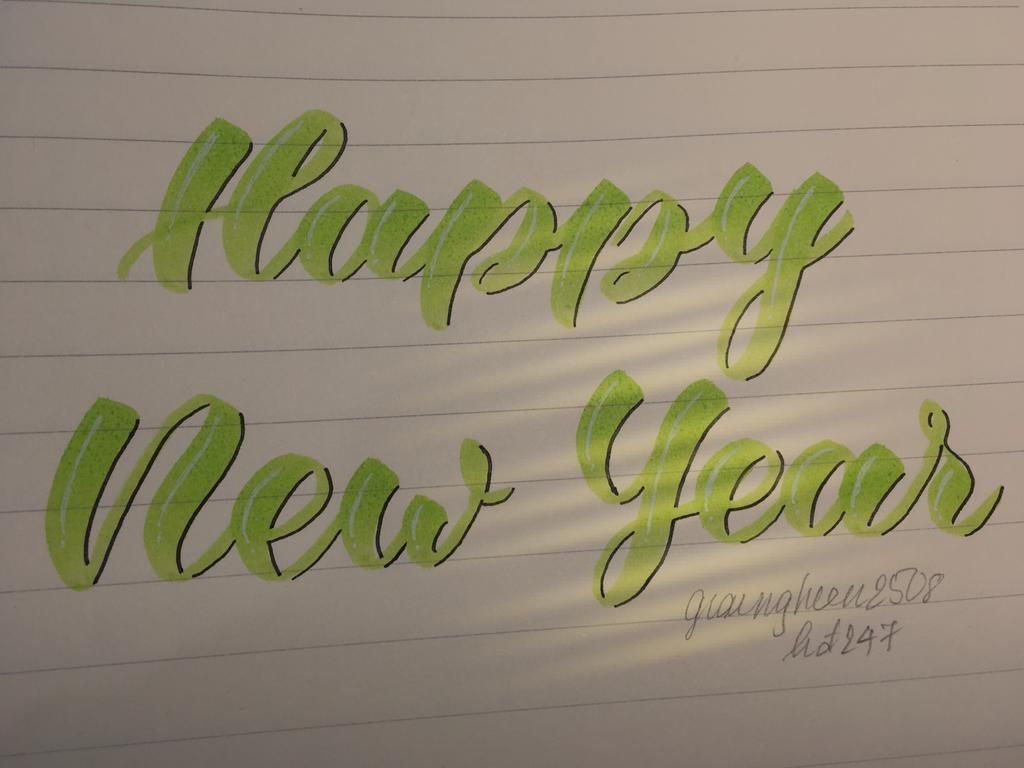 Happy
New Year
hd247